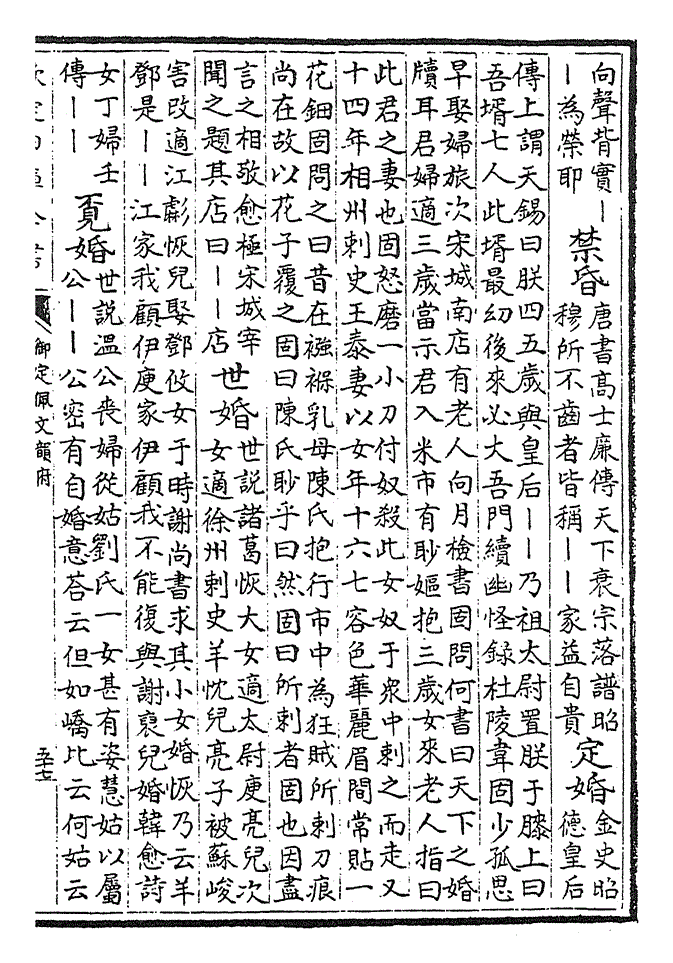 向聲背實｜
｜為榮耶
禁昏
唐書高士廉傳天下衰宗落譜昭
穆所不齒者皆稱｜｜家益自貴
定婚
金史昭
德皇后
傳上謂天錫曰朕四五歲與皇后｜｜乃祖太尉置朕于膝上曰
吾壻七人此壻最幼後來必大吾門續幽怪錄杜陵韋固少孤思
早娶婦旅次宋城南店有老人向月檢書固問何書曰天下之婚
牘耳君婦適三歲當示君入米市有眇嫗抱三歲女來老人指曰
此君之妻也固怒磨一小刀付奴殺此女奴于衆中刺之而走又
十四年相州刺史王泰妻以女年十六七容色華麗眉間常貼一
花鈿固問之曰昔在襁褓乳母陳氏抱行市中為狂賊所刺刀痕
尚在故以花子覆之固曰陳氏眇乎曰然固曰所刺者固也因盡
言之相敬愈極宋城宰
聞之題其店曰｜｜店
世婚
世說諸葛恢大女適太尉庾亮兒次
女適徐州刺史羊忱兒亮子被蘇峻
害改適江虨恢兒娶鄧攸女于時謝尚書求其小女婚恢乃云羊
鄧是｜｜江家我顧伊庾家伊顧我不能復與謝裒兒婚韓愈詩
女丁婦壬
傳｜｜
覔婚
世說溫公喪婦從姑劉氏一女甚有姿慧姑以屬
公｜｜公密有自婚意荅云但如嶠比云何姑云
御定佩文韻府
五十七